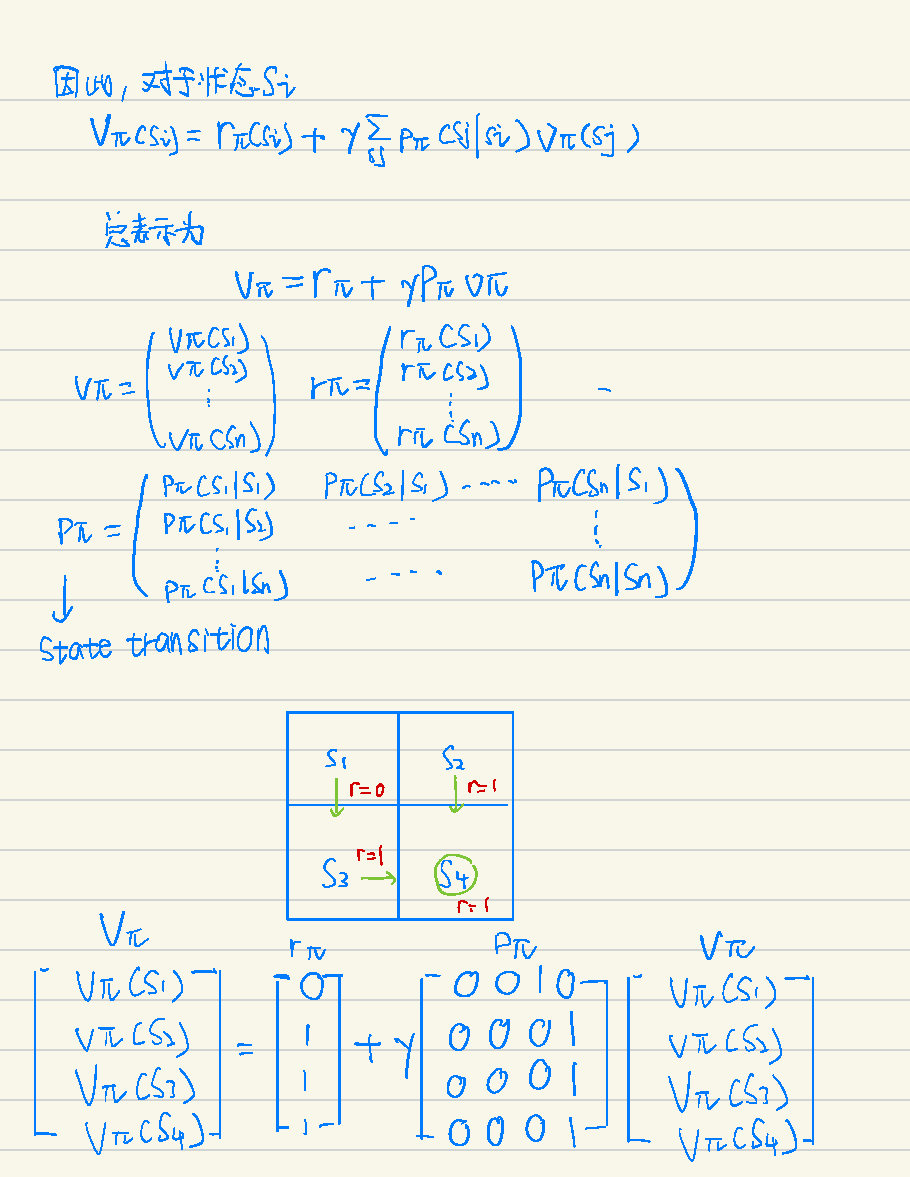 因此, 对于状态Si
Vπ(Si) = rπ(Si) + γ∑Sj Pπ(Sj|Si)Vπ(Sj)
总表示为
Vπ = rπ + γPπVπ
Vπ = (Vπ(S1) Vπ(S2) ⋮ Vπ(Sn)) rπ = (rπ(S1) rπ(S2) ⋮ rπ(Sn))
Pπ = (Pπ(S1|S1) Pπ(S2|S1) ---- Pπ(Sn|S1)
Pπ(S1|S2) ---- ⋮
⋮
Pπ(S1|Sn) ---- Pπ(Sn|Sn))
↓
State transition
S1 S2
r=0 r=1
S3 r=1 S4
r=1
Vπ rπ Pπ Vπ
[Vπ(S1)] [0] [0 0 1 0] [Vπ(S1)]
[Vπ(S2)] = [1] + γ [0 0 0 1] [Vπ(S2)]
[Vπ(S3)] [1] [0 0 0 1] [Vπ(S3)]
[Vπ(S4)] [1] [0 0 0 1] [Vπ(S4)]